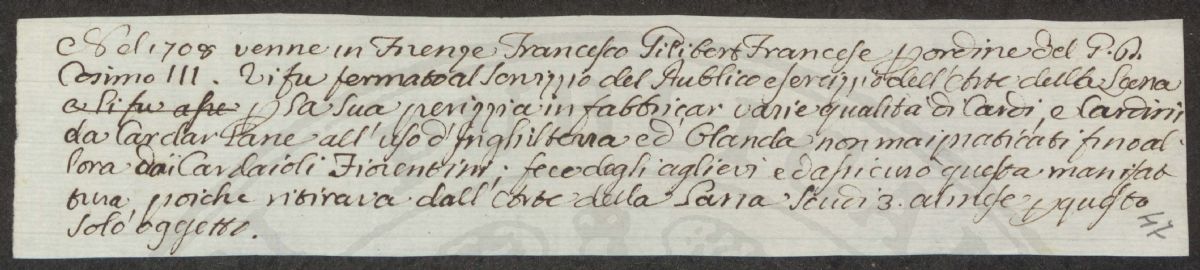 Nel 1708 venne in Firenze Francesco Filibert Francese p ordine del G. D.
Cosimo III. Vi fu fermato al Servizzio del Publico esercizzio dell'Arte della Lana
e li fu p la sua perizzia in fabbricar varie qualità di Cardi, e Cardini
da Cardar Pane all'uso d'Inghilterra ed Olanda non mai praticati fino al-
lora dai Cardaioli Fiorentini; fece degli aglievi ed assicurò questa manifat
tura poiche ritirava dall'Arte della Lana Scudi 3. al mese p questo
solo oggetto.
47